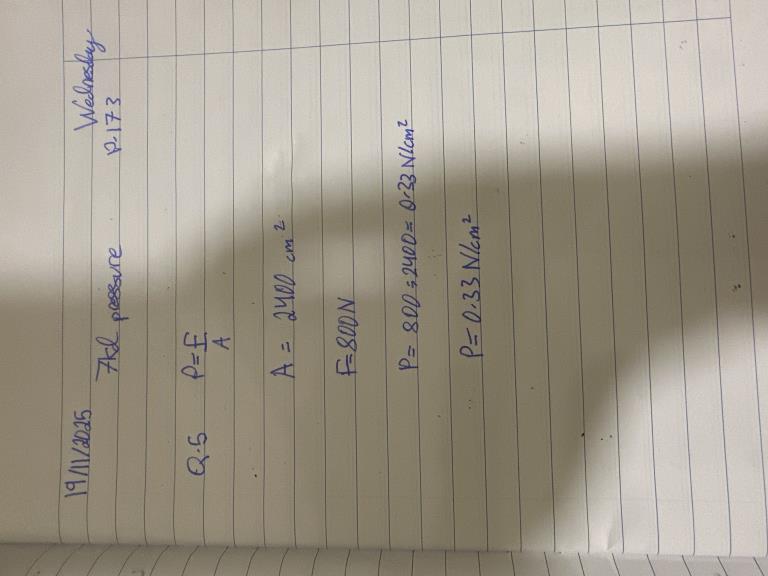 19/11/2025 Wednesday
7kd pressure P.173
Q.5 P=F/A
A = 2400 cm²
F=800N
P= 800÷2400= 0.33 N/cm²
P= 0.33 N/cm²